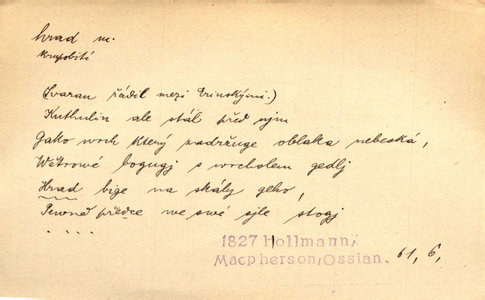 hrad m.
krupobití
(Swaran řádil mezi Erinskými.)
Kuthulin ale stál před njm
Gako wrch který zadržuge oblaka nebeská,
Wětrowé bogugj s wrcholem gedlj
Hrad bige na skály geho,
Pewně předce we swé sjle stogj
. . . .
1827 Hollmann,
Macpherson, Ossian. 61, 6,